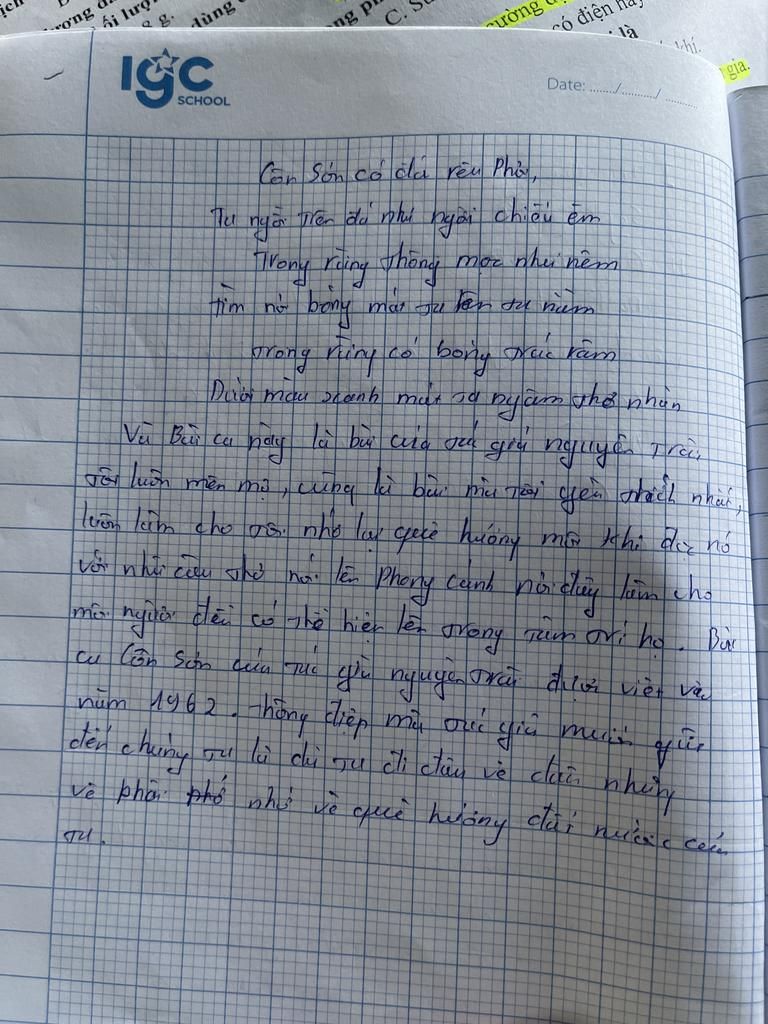 dùng
C. Sư
cường đ
có điện này
là
khí.
gia.
IGC
SCHOOL
Date: ....../........./ .........
Côn Sơn có đá rêu phơi,
Ta ngồi trên đá như ngồi chiếu êm
Trong rừng thông mọc như nêm
Tìm nơi bóng mát ta lên ta nằm
trong rừng có bóng trúc râm
Dưới màu xanh mát ta ngâm thơ nhàn
Và Bài ca này là bài của tác giả nguyễn Trãi,
tôi luôn mến mộ, cũng là bài mà tôi yêu thích nhất,
luôn làm cho tôi nhớ lại quê hương mỗi khi đọc nó
với những câu thơ nói lên phong cảnh nơi đây làm cho
mỗi người đều có thể hiện lên trong tâm trí họ. Bài
ca Côn Sơn của tác giả nguyễn Trãi được viết vào
năm 1962. thông điệp mà tác giả muốn gửi
đến chúng ta là dù ta đi đâu về đâu nhưng
về phải nhớ về quê hương đất nước của
ta.